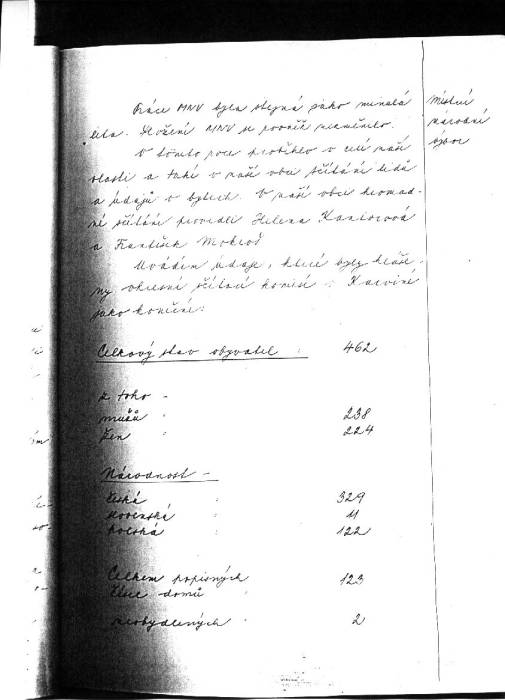 Práce MNV byla stejná jako minulá
léta. Složení MNV se rovněž nezměnilo.
V tomto roce proběhlo v celé naší
vlasti a také v naší obci sčítání lidu
a údajů o bytech. V naší obci hromad-
né sčítání provedli Helena Kantorová
a František Mokroš
Uvádím údaje, které byly hláše-
ny okresní sčítací komisi v Karviné
jako konečné:
Místní
národní
výbor
Celkový stav obyvatel : 462
z toho -
mužů " 238
žen " 224
Národnost -
česká " 329
slovenská " 11
polská " 122
Celkem popisných " 123
čísel domů "
neobydlených " 2